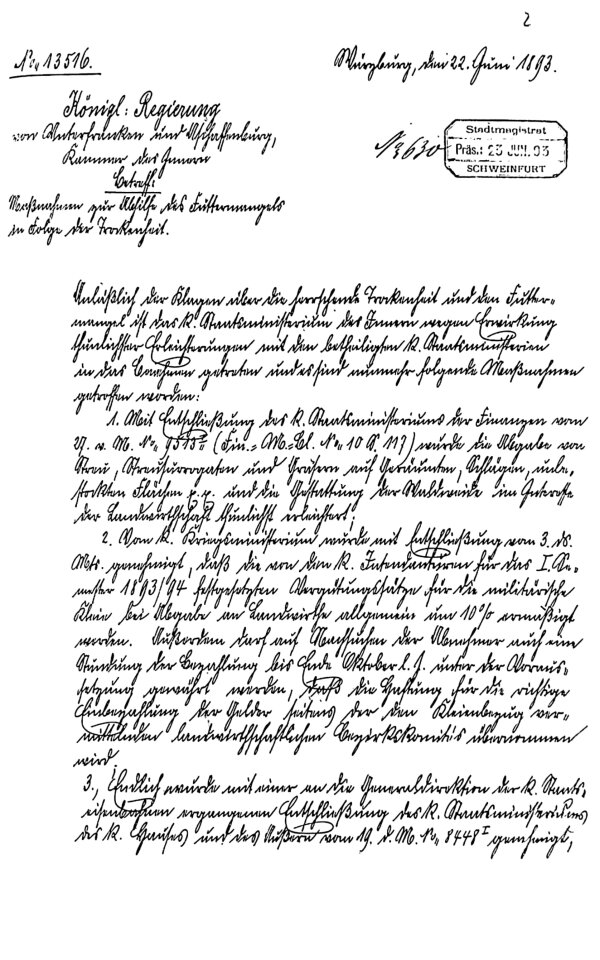 2
No. 13516.
Würzburg, den 22. Juni 1893.
Königl: Regierung
von Unterfranken und Aschaffenburg,
Kammer des Innern
Betreff:
Maßnahmen zur Abhilfe des Futtermangels
in Folge der Trockenheit.
No 3630
Stadtmagistrat
Präs.: 23 JUN. 93
SCHWEINFURT
Anläßlich der Klagen über die herrschende Trockenheit und den Futter=
mangel ist das K. Staatsministerium des Innern wegen Erwirkung
thunlichster Erleichterungen mit den betheiligten K. Staatsministerien
in das Benehmen getreten und es sind nunmehr folgende Maßnahmen
getroffen worden:
1. Mit Entschließung des K. Staatsministeriums der Finanzen vom
27. v. M. No. (Fin.= M.=Bl. No. 10 S. 117) wurde die Abgabe von
Streu, Streusurrogaten und Gräsern auf Geräumten, Schlägen, unbe=
stockten Flächen p. p. und die Gestattung der Waldweide im Interesse
der Landwirthschaft thunlichst erleichtert;
2. Vom K. Kriegsministerium wurde mit Entschließung vom 3. ds.
Mts. genehmigt, daß die von den K. Intendanturen für das I. Se=
mester 1893/94 festgesetzten Vergütungssätze für die militärische
Kleie bei Abgabe an Landwirthe allgemein um 10% ermäßigt
werden. Außerdem darf auf Nachsuchen der Abnehmer auch eine
Stundung der Bezahlung bis Ende Oktober l. J. unter der Voraus=
setzung gewährt werden, daß die Haftung für die richtige
Einbezahlung der Gelder seitens der den Kleiebezug ver=
mittelnden landwirthschaftlichen Bezirkskomités übernommen
wird.
3., Endlich wurde mit einer an die Generaldirektion der K. Staats=
eisenbahnen ergangenen Entschließung des K. Staatsministeriums
des K. Hauses und des Äußern vom 19. d. M. No. 8448 I genehmigt,